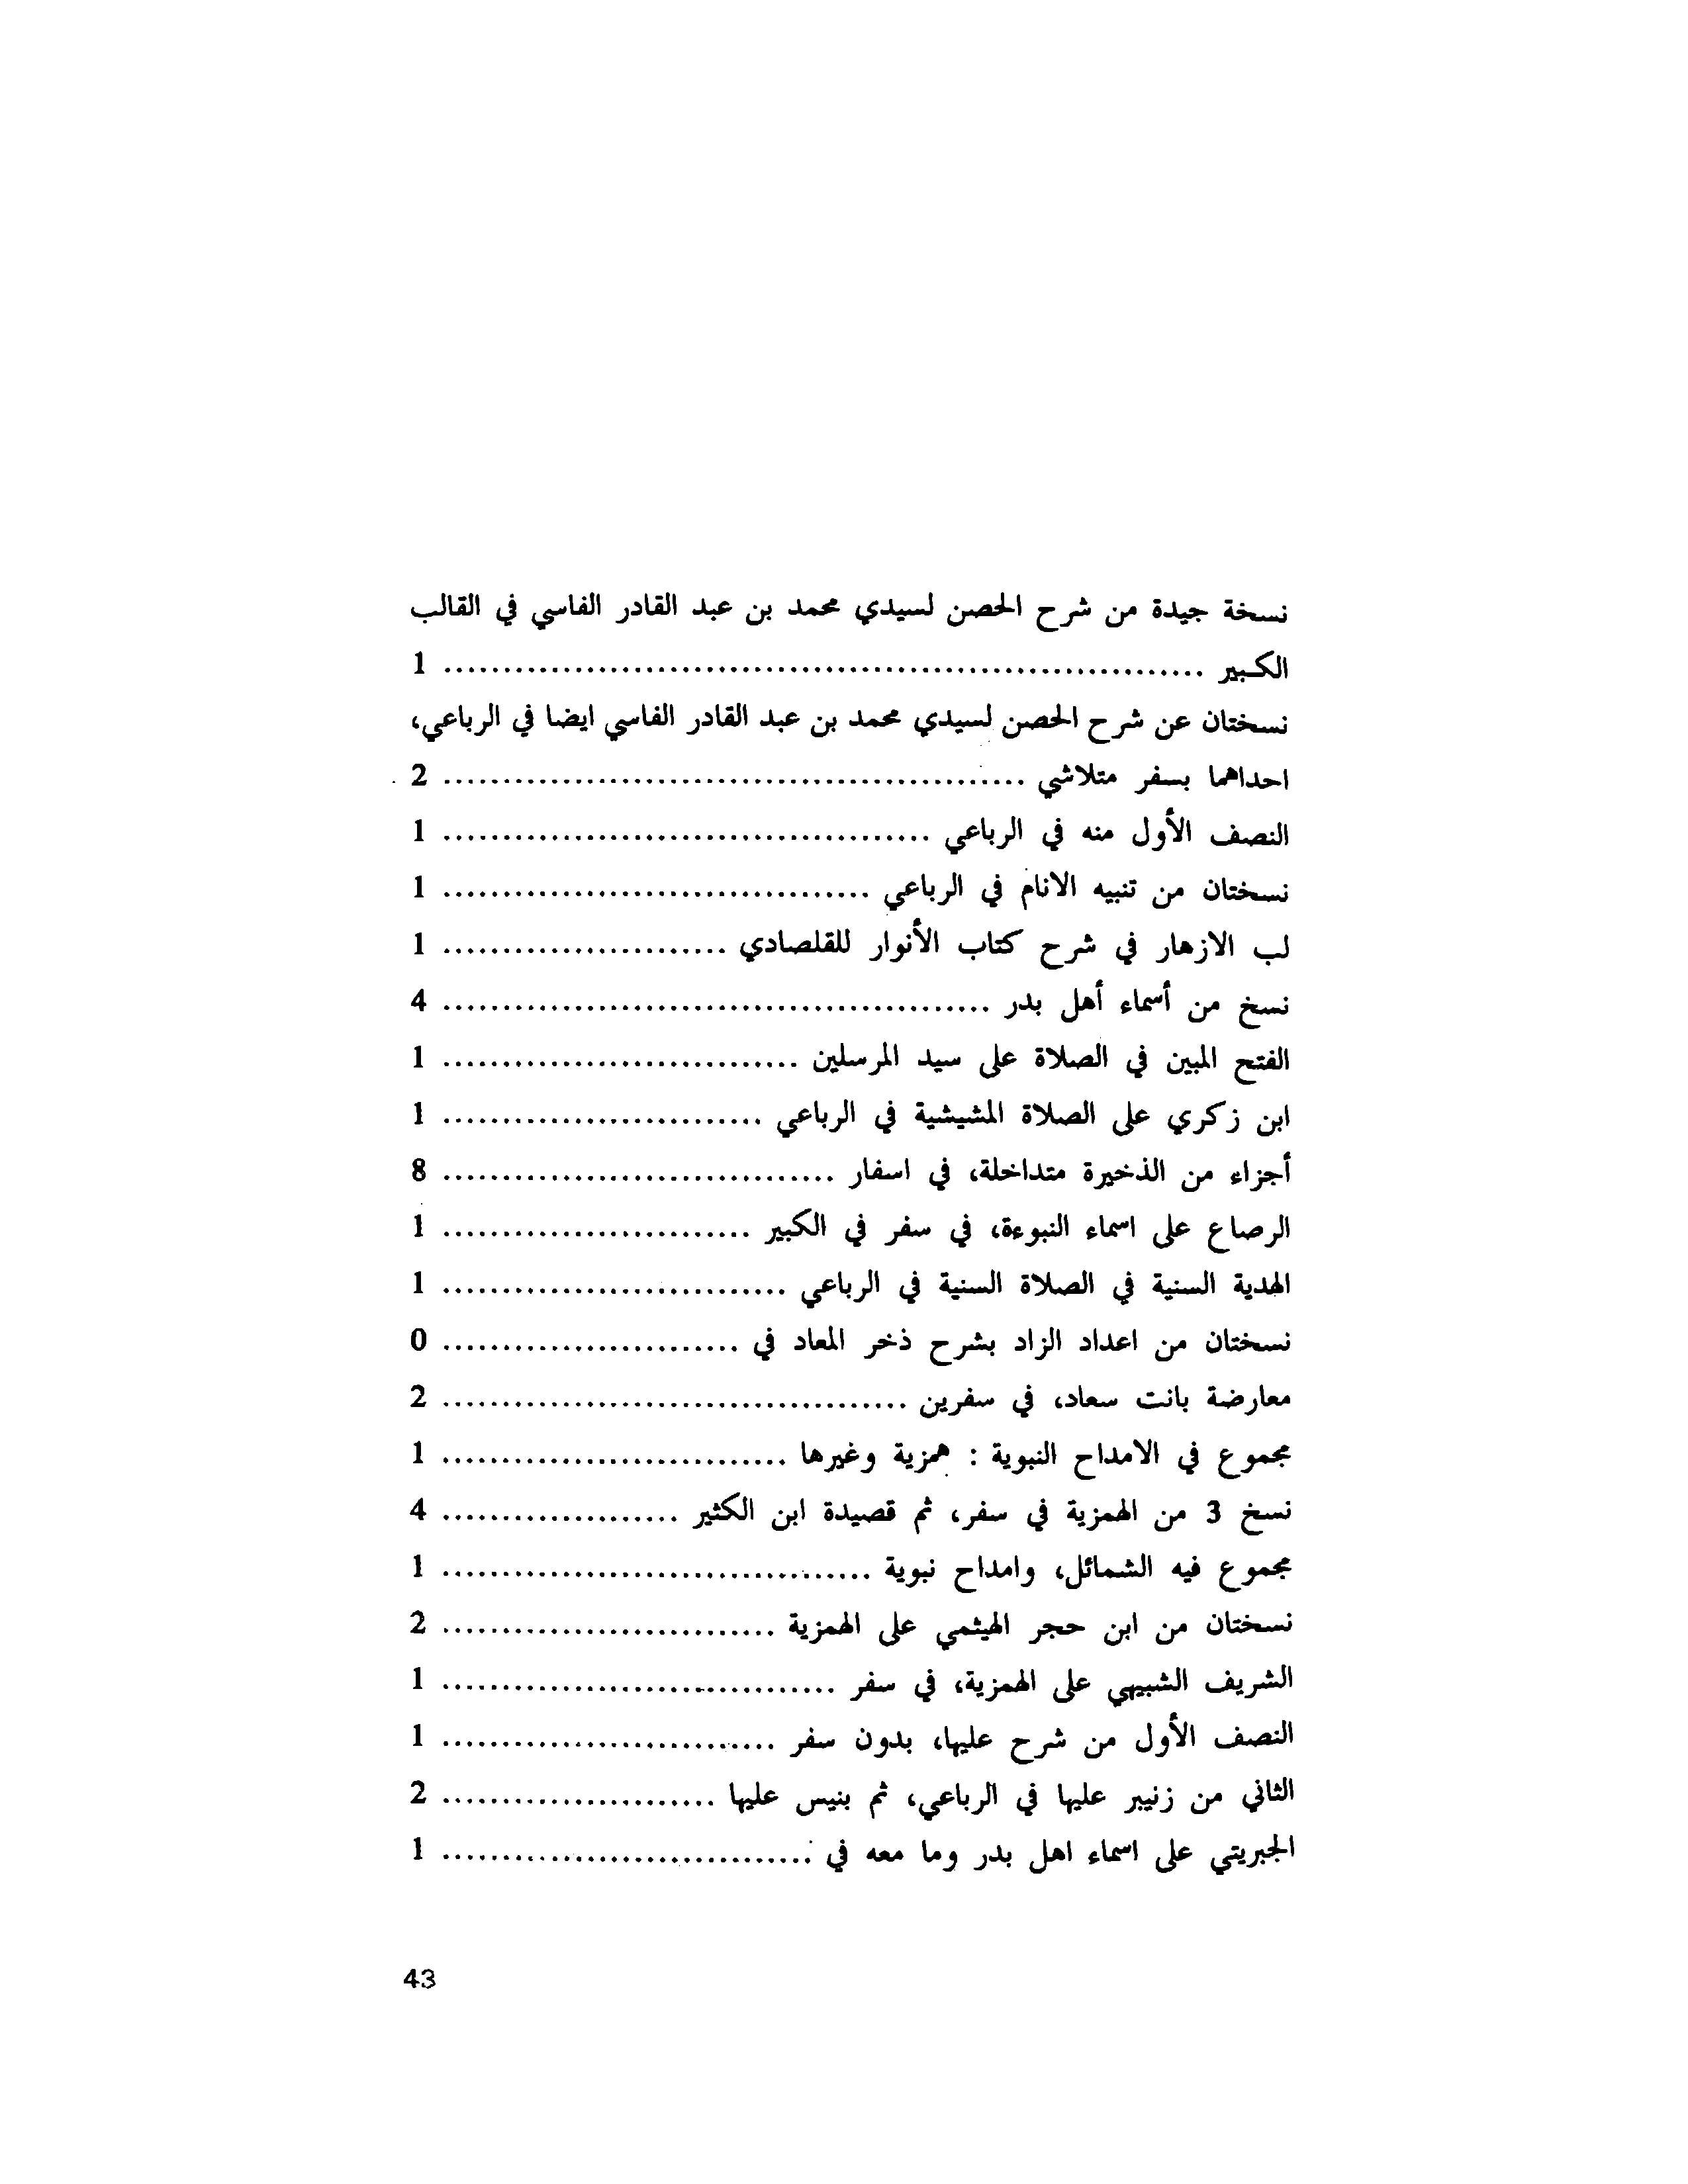 نسخة جيدة من شرح الحصن لسيدي محمد بن عبد القادر الفاسي في القالب
الكبير ............................................................... 1
نسختان عن شرح الحصن لسيدي محمد بن عبد القادر الفاسي ايضا في الرباعي،
احداهما بسفر متلاشي ................................................ 2
النصف الأول منه في الرباعي ........................................ 1
نسختان من تنبيه الانام في الرباعي ................................... 1
لب الازهار في شرح كتاب الأنوار للقلصادي ........................ 1
نسخ من أسماء أهل بدر ............................................. 4
الفتح المبين في الصلاة على سيد المرسلين .............................. 1
ابن زكري على الصلاة المشيشية في الرباعي ........................... 1
أجزاء من الذخيرة متداخلة، في اسفار ................................. 8
الرصاع على اسماء النبوءة، في سفر في الكبير .......................... 1
الهدية السنية في الصلاة السنية في الرباعي ............................. 1
نسختان من اعداد الزاد بشرح ذخر المعاد في ......................... 0
معارضة بانت سعاد، في سفرين ...................................... 2
مجموع في الامداح النبوية : همزية وغيرها ............................. 1
نسخ 3 من الهمزية في سفر، ثم قصيدة ابن الكثير .................... 4
مجموع فيه الشمائل، وامداح نبوية .................................... 1
نسختان من ابن حجر الهيثمي على الهمزية ............................ 2
الشريف الشبيهي على الهمزية، في سفر ................................. 1
النصف الأول من شرح عليها، بدون سفر ............................ 1
الثاني من زنيبر عليها في الرباعي، ثم بنيس عليها ....................... 2
الجبريتي على اسماء اهل بدر وما معه في ............................... 1
43